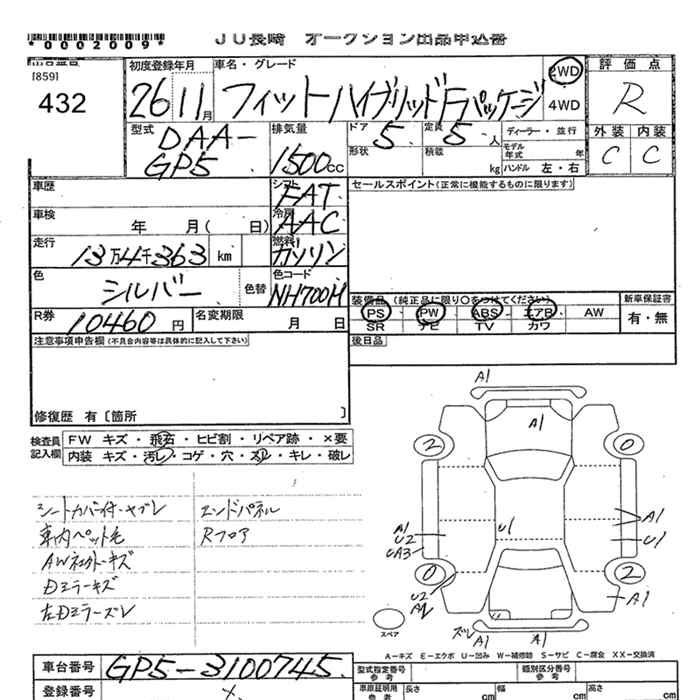 *0002009*
JU長崎 オークション出品申込書
[859]
432
初度登録年月 車名・グレード
26 11月 フィットハイブリッドFパッケージ
2WD
4WD
評価点
R
外装 内装
C C
型式 DAA-GP5
排気量 1500cc
ドア 5 定員 5人
形状 積載 kg
ディーラー・並行
モデル年式 年
ハンドル 左・右
車歴
シフト FAT
セールスポイント(正常に機能するものに限ります)
車検 年 月( 日)
冷房 AAC
走行 13万4千363 km
燃料 ガソリン
色 シルバー 色替
色コード NH700M
装備品(純正品に限り○をつけてください) 新車保証書
PS PW ABS エアB AW 有・無
SR ナビ TV カワ
R券 10460円 名変期限 月 日
後日品
注意事項申告欄(不具合内容等は具体的に記入して下さい)
修復歴 有〔箇所 〕
検査員記入欄
FW キズ・飛石・ヒビ割・リペア跡・×要
内装 キズ・汚レ・コゲ・穴・スレ・キレ・破レ
シートカバー付・ヤブレ エンドパネル
車内ペット毛 Rフロア
AWネクト・キズ
Dミラーキズ
左Dミラーズレ
A1
A1
2 0
A1
U2
UA3
U1
A1
U1
0 2
U2
A2
A1
ズレ A1 A1
スペア
A-キズ E-エクボ U-凹み W-補修跡 S-サビ C-腐食 XX-交換済
車台番号 GP5-3100745
型式指定番号 参考 類別区分番号 参考
登録番号
車庫証明用 参考 長さ cm 幅 cm 高さ cm